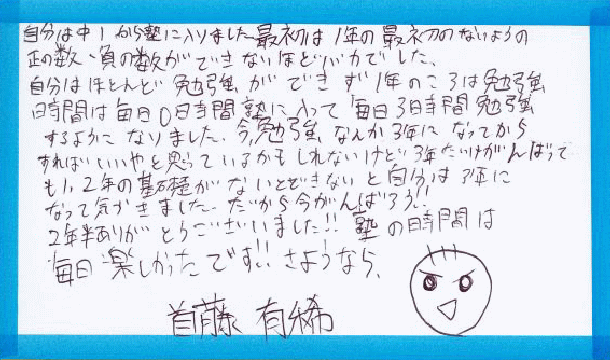 自分は中1から塾に入りました最初は1年の最初のないようの
正の数・負の数ができないほどバカでした。
自分はほとんど勉強ができず1年のころは勉強
時間は毎日0時間塾に入って毎日3時間勉強
するようになりました。今、勉強なんか3年になってから
すればいいやと思っているかもしれないけど3年だけがんばって
も1、2年の基礎がないとできないと自分は3年に
なって気づきました。だから今がんばろう!!
2年半ありがとうございました!! 塾の時間は
毎日楽しかったです!! さようなら、
首藤 有稀